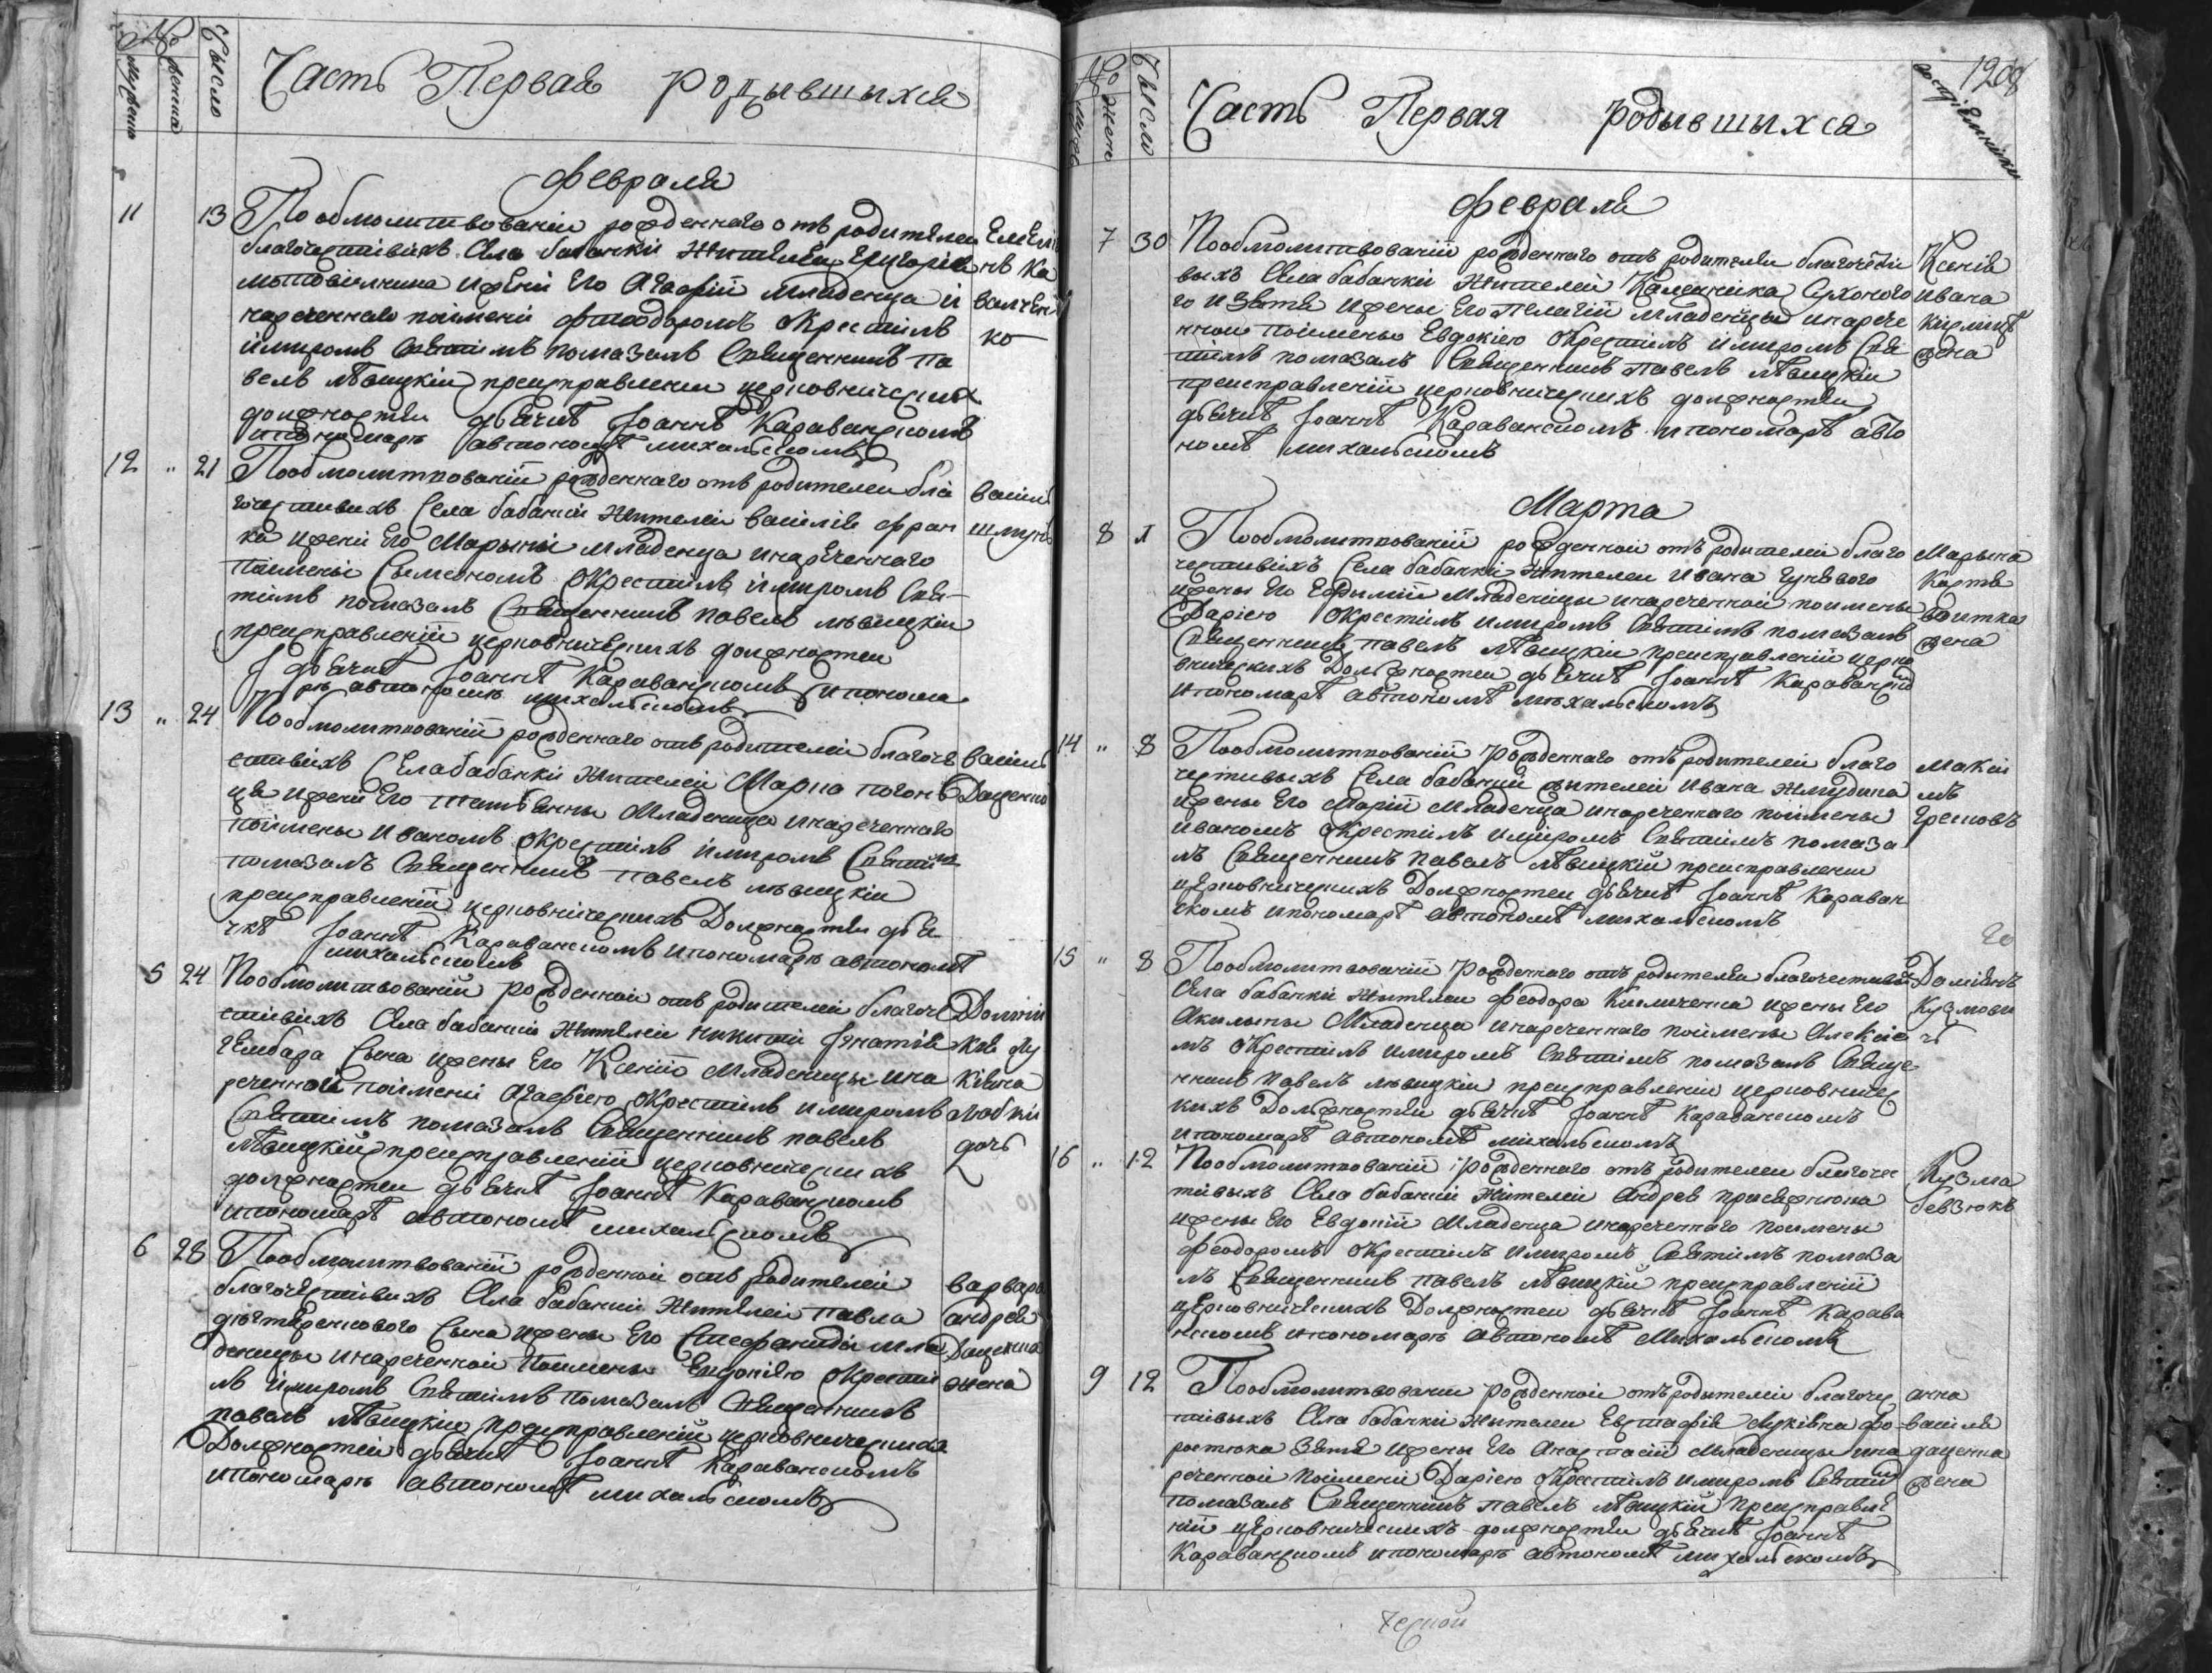 №
Мужеска
женска
Число
Часть Первая родывшыхся
февраля
11 13 По обмолитвованіи рожденнаго отъ родителеи
благочестивихъ Села бабанки Жителеи Григорія
и жені Его Агафіи Младенца и
нареченнаго поімені Фтеодоромъ окрестилъ
імиромъ Святимъ помазалъ Священникъ Па
велъ Лѣвицкіи приисправлении церковническихъ
должностеи дьячкѣ Іоаннѣ Караванскомъ
и пономарѣ автономѣ михальскомъ
Емелі
янъ Ка
валчен
ко
12 " 21 Пообмолитвованіи рожденнаго отъ родителеи бла
гочестивихъ Села бабанки Жителеи Василія фран
ка ижені Его Марыни младенца инареченнаго
поімені Сымеономъ окрестилъ імиромъ Свя
тимъ помазалъ Священникъ павелъ лѣвицкіи
приисправленіи церковническихъ должностеи
дьячкѣ Іоаннѣ Караванскомъ и понома
рѣ автономѣ михальскомъ
13 " 24 Пообмолитвованіи рожденнаго отъ родителеи благоче
стивихъ Села бабанки Жителеи Марка погонъ
ця ижени Его татіянны Младенца инареченнаго
поімены Иваномъ окрестилъ імиромъ Святимъ
помазалъ Священникъ павелъ лѣвицкіи
приисправленіи церковническихъ Должностеи дья
чкѣ Іоаннѣ Караванскомъ и пономарѣ автономѣ
михальскомъ
Василь
Даценко
5 24 Пообмолитвованіи рожденнои отъ родителеи благоче
стивихъ Села бабанки Жителеи Никити Ігнатія
Гембара Сына ижены Его Ксеніи Младеницы ина
реченнои поімені Агафіею окрестилъ имиромъ
Святимъ помазалъ Священникъ павелъ
лѣвицкіи приисправленіи церковническихъ
должностеи дьячкѣ Іоаннѣ Караванскомъ
и пономарѣ автономѣ михальскомъ
дочь
6 28 Пообмолитвованіи рожденнои отъ родителеи
благочестивихъ Села бабанки Жителеи павла
Сына ижены Его Стефаниди мла
деницы инареченнои поимены Евдокіею окрести
лъ імиромъ Святимъ помазалъ Священникъ
павелъ лѣвицкіи приисправленіи церковническихъ
Должностеи дьячкѣ Іоаннѣ Караванскомъ
и пономарѣ автономѣ михальскомъ
варвара
андрея
Даценка
жена
№
Число
Часть Первая родывшыхся
1208
воспріемники
февраля
7 30 Пообмолитвованіи рожденнаго отъ родителеи благочести
выхъ Села бабанки Жителеи Каленника Сухоного
го изятя ижены Его пелагіи младеницы инарече
ннои поімены Евдокіею окрестилъ имиромъ Свя
тимъ помазалъ Священникъ павелъ лѣвицкіи
приисправленіи церковническихъ должностеи
дьячкѣ Іоаннѣ Караванскомъ ипономарѣ авто
номѣ михальскомъ
Ксенія
Ивана
жена
Марта
8 1 Пообмолитвованіи рожденнои отъ родителеи благо
честивіхъ Села бабанки Жителеи Ивана
ижены Его Ефиміи Младеницы инареченнои поимены
Даріею окрестилъ имиромъ Святимъ помазалъ
Священникъ павелъ лѣвицкіи приисправленіи церко
вническихъ Должностеи дьячкѣ Іоаннѣ Караванско
ипономарѣ автономѣ михальскомъ
Марына
Карпа
воитка
жена
14 " 8 Пообмолитвованіи рожденнаго отъ родителеи благо
честивыхъ Села бабанки жителеи Ивана Жмудина
ижены Его Маріи Младенца инареченнаго поімены
Иваномъ окрестилъ имиромъ Святимъ помаза
лъ Священникъ павелъ лѣвицкіи приисправлении
церковническихъ Должностеи дьячкѣ Іоаннѣ Караван
скомъ ипономарѣ автономѣ михальскомъ
Макси
мъ
Грековъ
20
15 " 8 Пообмолитвованіи рожденнаго отъ родителеи благочестивыхъ
Села бабанки Жителеи Феодора Киличенка ижены Его
Акилыны Младенца инареченнаго поімены Алексіе
мъ окрестилъ имиромъ Святимъ помазалъ Свяще
нникъ павелъ лѣвицкіи приисправленіи церковничес
кихъ Должностеи дьячкѣ Іоаннѣ Караванскомъ
ипономарѣ Автономѣ михальскомъ
Даміянъ
Кузмови
чъ
16 " 12 Пообмолитвованіи рожденнаго отъ родителеи благочес
тивыхъ Села бабанки Жителеи Андрея
ижены Его Евдокіи Младенца инареченнаго поимены
Феодоромъ окрестилъ имиромъ Святимъ помаза
лъ Священникъ павелъ лѣвицкіи приисправленіи
церковническихъ Должностеи дьячкѣ Іоаннѣ Карава
нскомъ ипономарѣ Автономѣ Михальскомъ
Кузма
бевзюкъ
9 12 Пообмолитвовании рожденнои отъ родителеи благочес
тивыхъ Села бабанки жытелеи Евстафія Луківка фо
ростюка зятя ижены Его Анастасіи Младеницы ина
реченнои поімені Даріею окрестилъ имиромъ Святим
помазалъ Священникъ павелъ лѣвицкіи приисправле
ніи церковническихъ должностеи дьячкѣ Іоаннѣ
Караванскомъ ипономарѣ автономѣ михальскомъ
анна
василя
даценка
жена